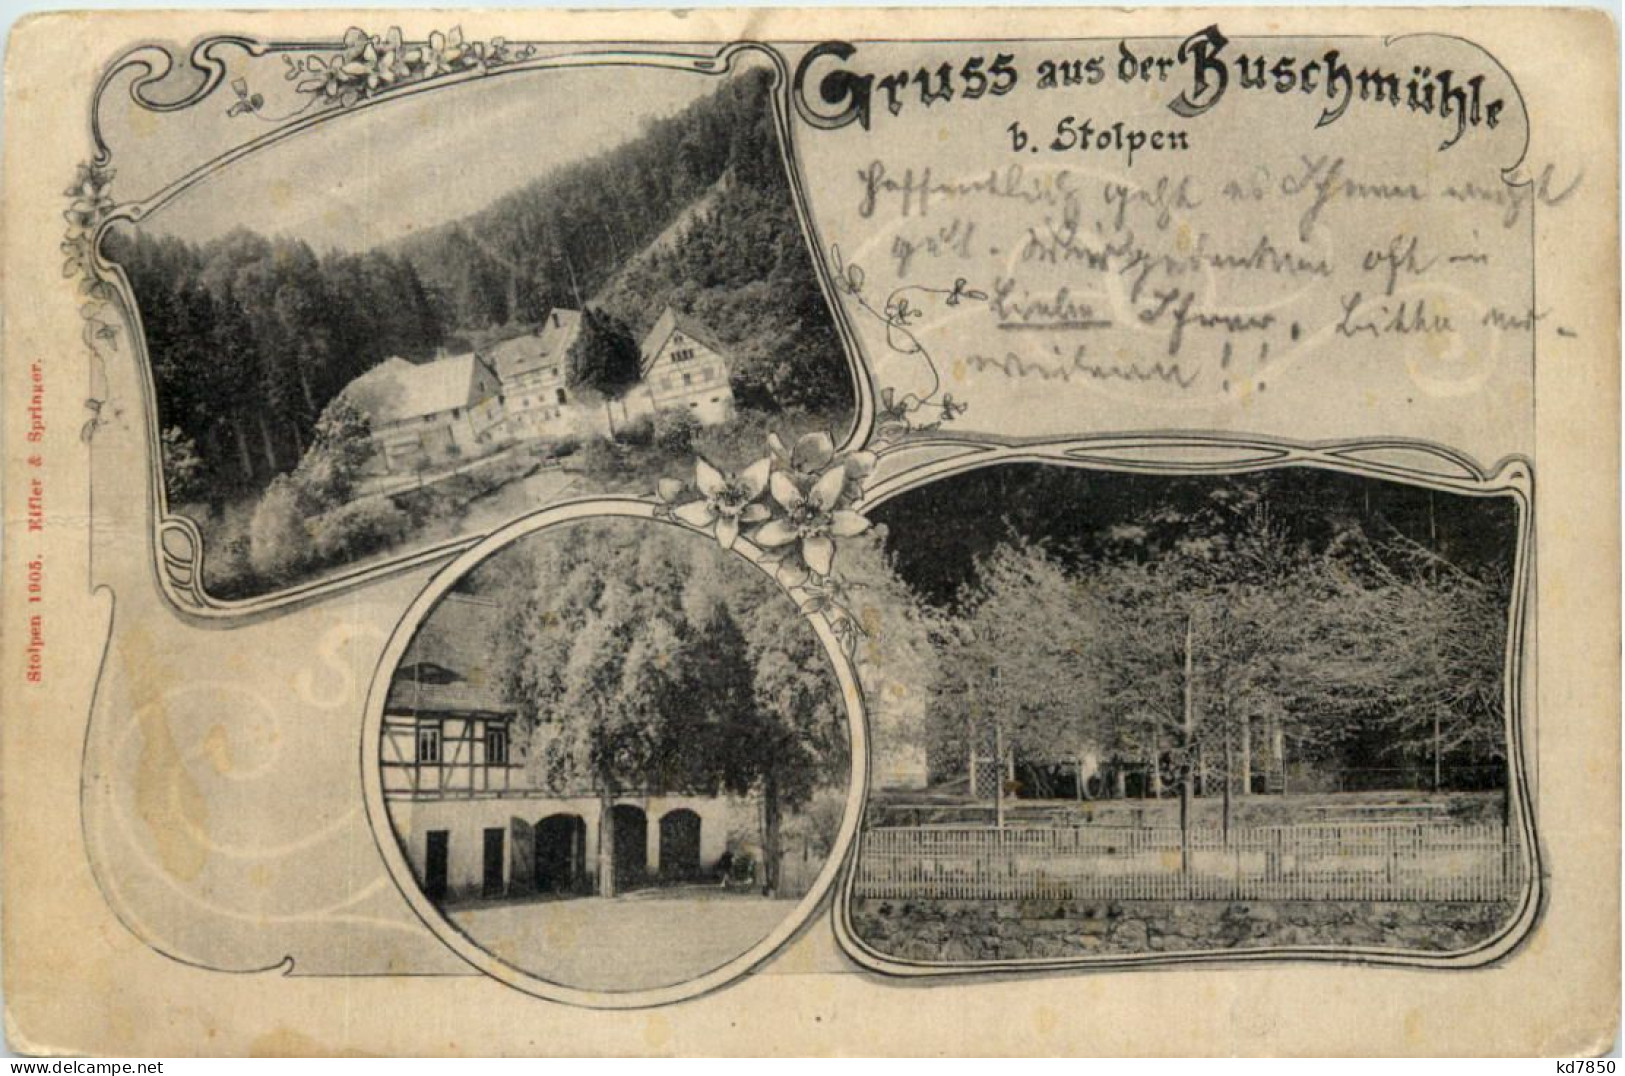 Gruss aus der Buschmühle
b. Stolpen
Hoffentlich geht es Ihnen recht
gut. oft in
Liebe Ihrer. Bitte
Stolpen 1905. Eifler & Springer.
kd7850